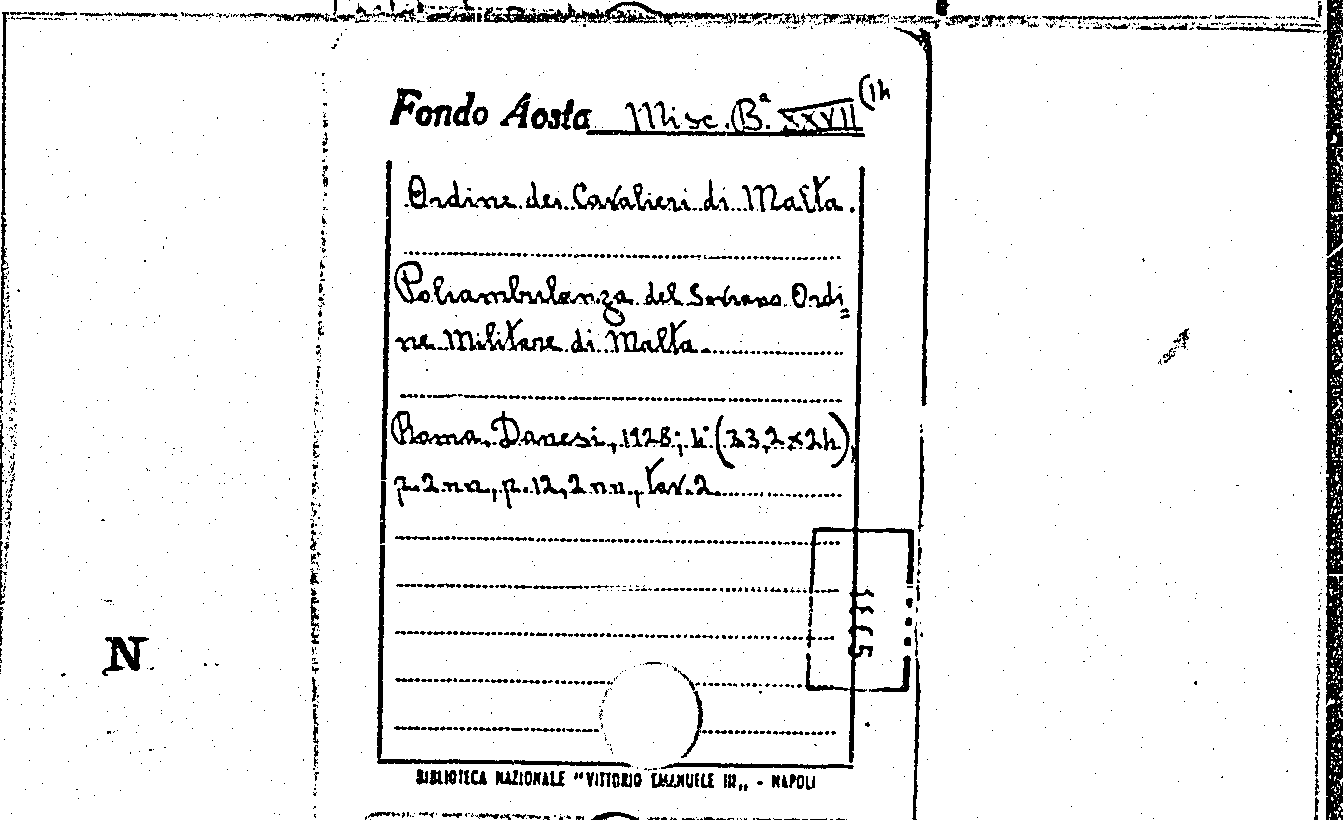 Fondo Aosta Misc. B.ª XXVII (14
Ordine dei Cavalieri di Malta.
Poliambulanza del Sovrano Ordi=
ne Militare di Malta.
Roma, Danesi, 1928; 4° (33,2x24)
p.2nn., p.12, 2nn., tav.2
N
BIBLIOTECA NAZIONALE "VITTORIO EMANUELE III„ - NAPOLI